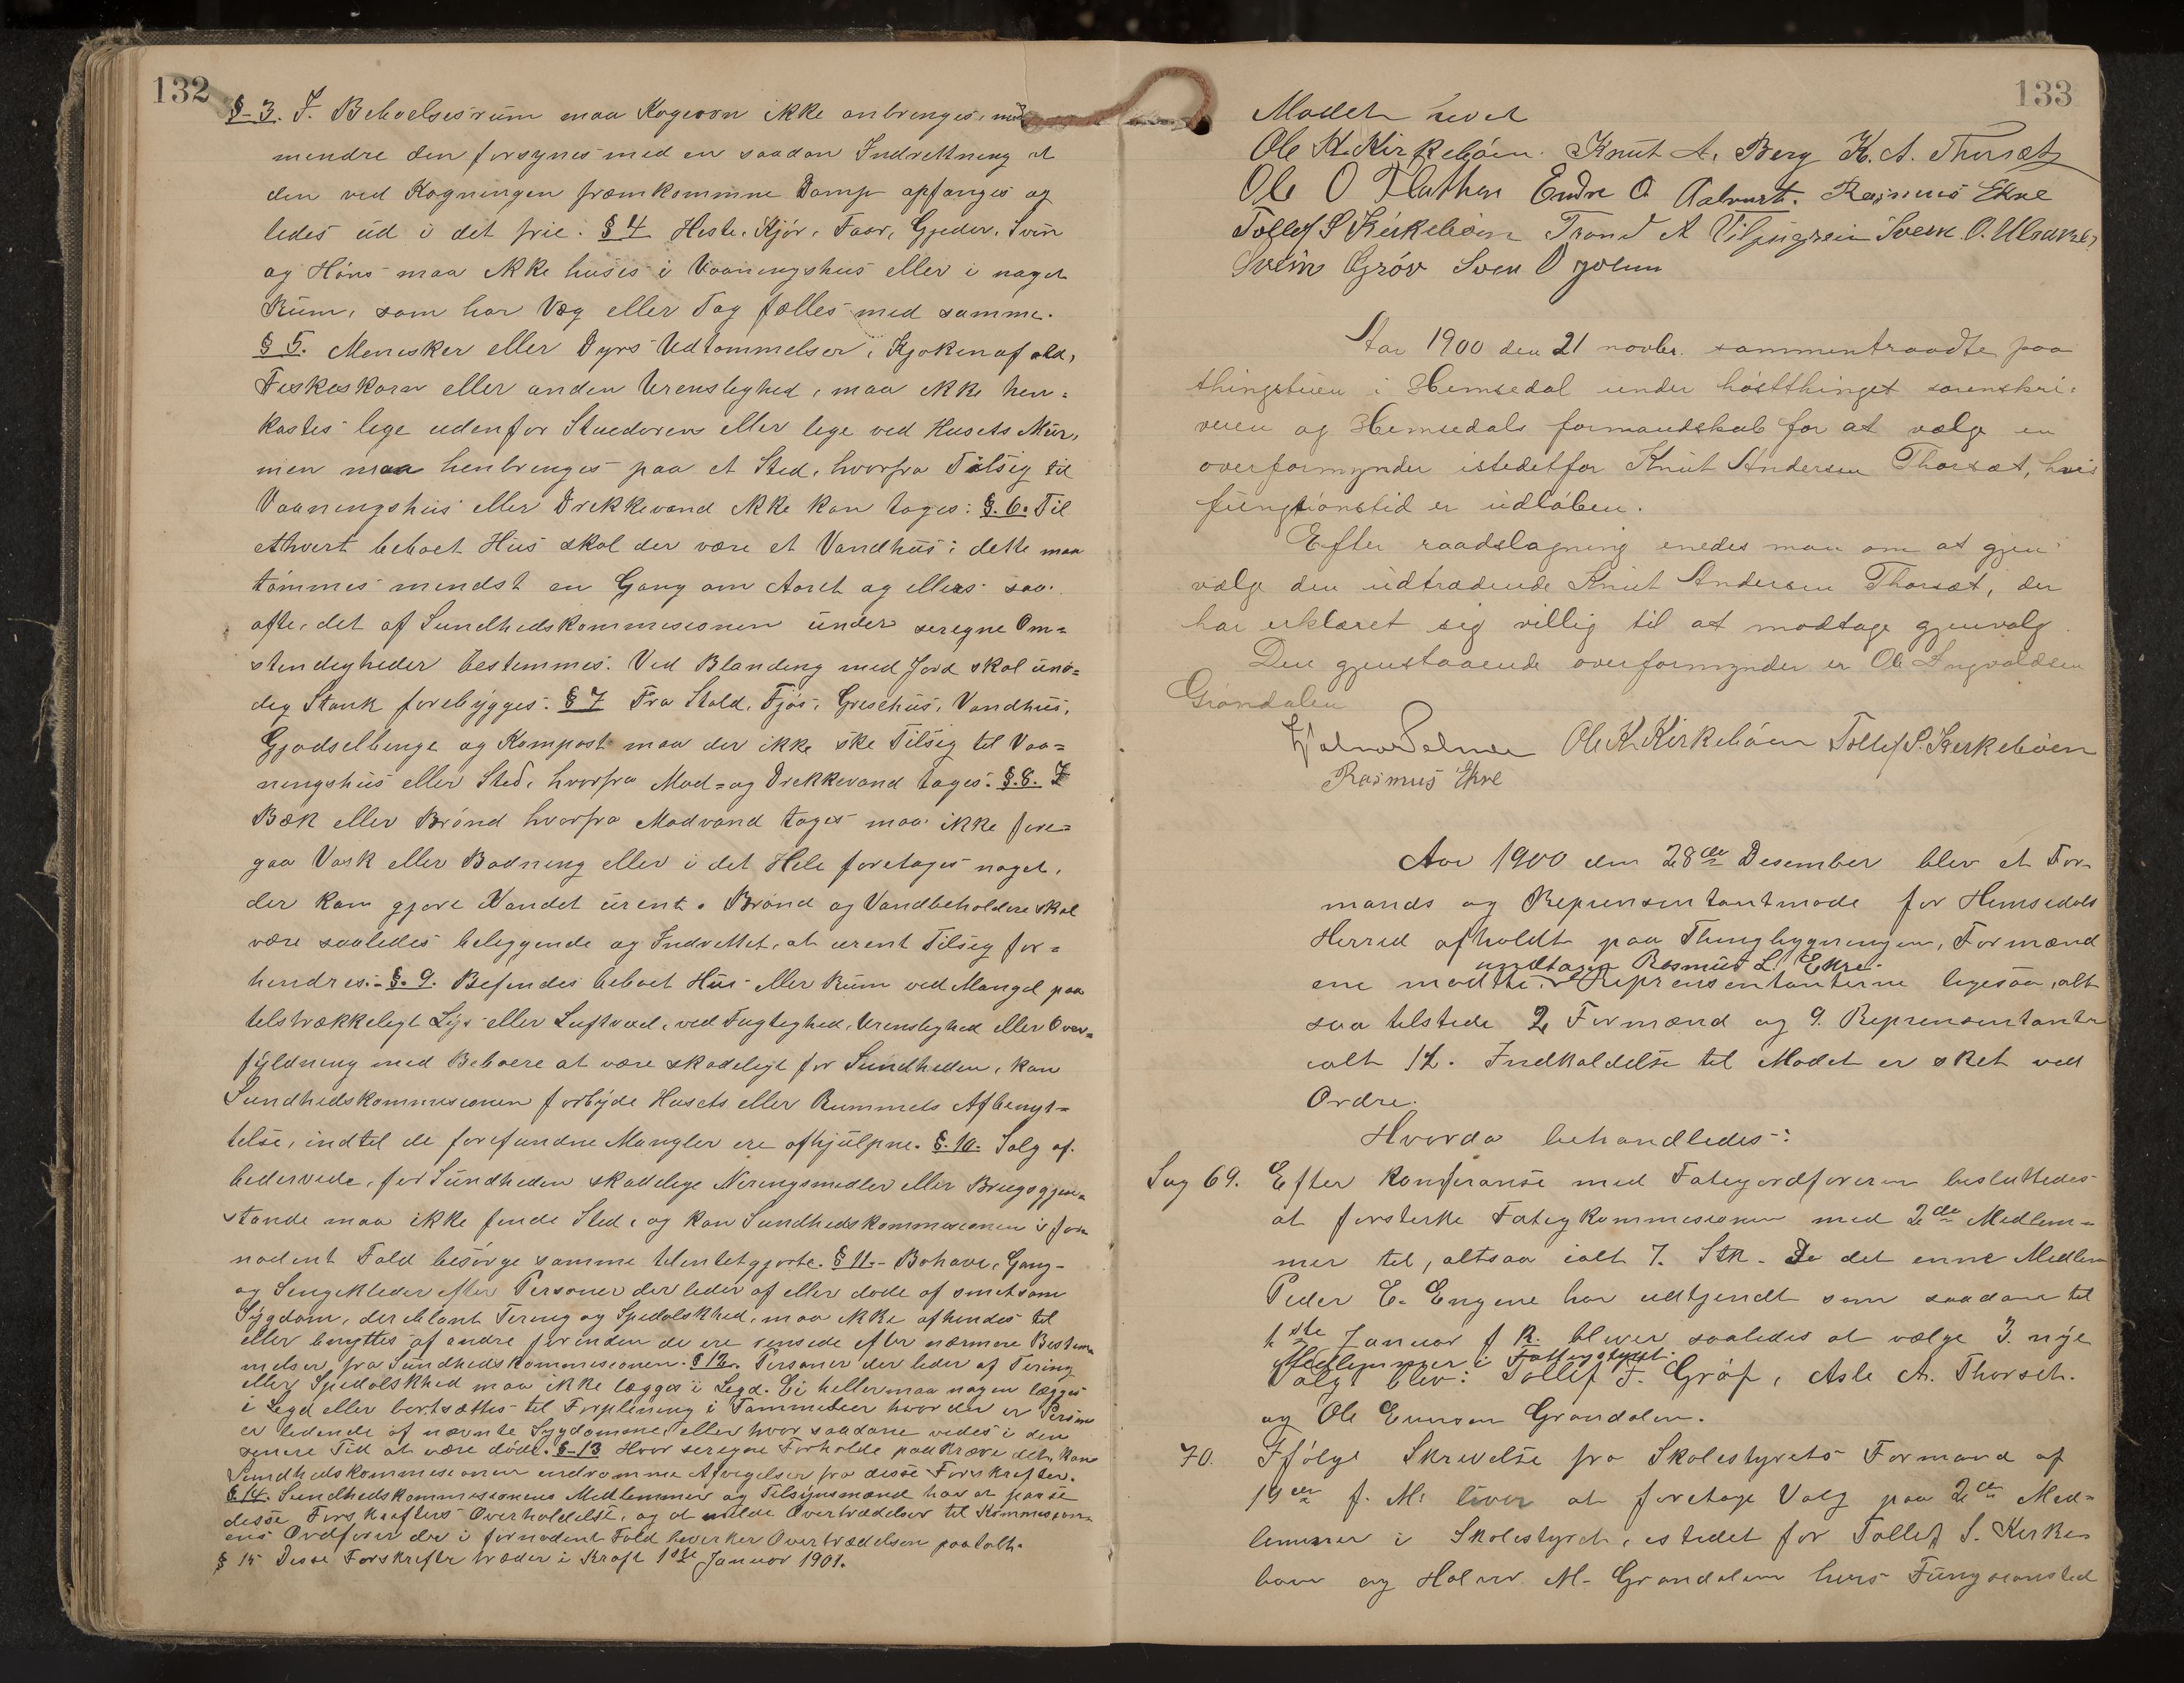 132
§ 3. I. Beboelsesrum maa Kogeovn ikke anbrenges, med
mendre den forsynes med en saadan Indrettning at
den ved Kogningen fremkommne Damp opfanges og
ledes ud i det frie. § 4 Heste, Kjør, Faar, Gjeder, Svin
og Høns maa ikke huses i Vaaningshus eller i noget
Rum, som har Væg eller Tag fælles med samme.
§ 5. Menisker eller Dyrs Udtommelser, Kjøkenafald,
Feskeskarn eller anden Urenslighed, maa ikke hen=
kastes lige udenfor Stuedoren eller lige ved Husets Mur,
men maa henbrenges paa et Sted, hvorfra Tilsig til
Vaaningshus eller Drekkevand ikke kan tages: §. 6. Til
ethvert beboet Hus skal der være et Vandhus: dette maa
tømmes mendst en Gang om Aaret og ellers saa
ofte, det af Sundhedskommesionen under seregne Om=
stendigheder bestemmes. Ved Blanding med Jord skal unø=
dig Stank forebygges. § 7 Fra Stald, Fjøs, Grisehus, Vandhus,
Gjødselbenge og Kompost maa der ikke ske Tilsig til Vaa=
ningshus eller Sted, hvorfra Mad= og Drekkevand tages. §. 8. I
Bæk eller Brønd hvorfra Madvand tages maa ikke fore=
gaa Vask eller Badning eller i det Hele foretages noget,
der kan gjøre Vandet urent. Brønd og Vandbeholdere skal
være saaledes beleggende og Indrettet, at urent Tilsig for=
hendres. §. 9. Befendes beboet Hus eller Rum ved Mangel paa
telstrækkeligt Lys eller Luftvexel, ved Fugtighed, Urenslighed eller Over=
fyldning med Beboere at være skadeligt for Sundheden, kan
Sundhedskommesionen forbyde Husets eller Rummets Afbenyt=
telse, indtil de forefundne Mangler ere afhjulpne. §. 10. Salg af
bedervede, for Sundheden skadelige Neringsmedler eller Brugsgjen=
stande maa ikke finde Sted, og kan Sundhedskommesionen i for
nødent Fald besørge samme telentetgjorte. § 11. Bohave, Gang-
og Sengeklæder efter Personer der leder af eller døde af smetsom
Sygdom, deriblant Tering og Spedalskhed, maa ikke afhendes til
eller benyttes af andre førenden de ere rensede efter nærmere Bestem
melser, fra Sundhedskommesionen. § 12. Personer der leder af Tering
eller Spedalskhed maa ikke lægges i Legd. Ei heller maa nogen lægges
i Legd eller bortsættes til Forpleining i Fammelier hvor der er Person
er ledende af nævnte Sygdomme, eller hvor saadane vedes i den
senere Tid at være døde. § 13 Hvor seregne Forholde paakræve det, kan
Sundhedskommesionen endrømme Afvigelser fra disse Forskrefter.
§ 14. Sundhedskommesionens Medlemmer og Tilsynsmænd har at paase
disse Forskrefters Overholdelse, og at melde Overtrædelser til Kommesion
ens Ordfører der i fornødent Fald bevirker Overtrædelsen paatalt.
§ 15 Disse Forskrefter træder i Kraft 1ste Januar 1901.
133
Mødet hevet
Ole K Kirkebøen. Knut A. Berg K. A. Thorset
Ole O Flathen Endre O Aalrust. Rasmus Ekre
Tollef S Kirkebøen Trond A Ulsaker Svein O. Ulsaker
Svein Grøv Sven O Jolum
Aar 1900 den 21 novbr. sammentraadte paa
thingstuen i Hemsedal under høstthinget sorenskri=
veren og Hemsedals formandskab for at vælge en
overformynder istedetfor Knut Andersen Thorset, hvis
fungtionstid er udløben.
Efter raadslagning enedes man om at gjen
vælge den udtrædende Knut Andersen Thorset, der
har erklæret sig villig til at modtage gjenvalg.
Den gjenstaaende overformynder er Ole Ingvaldsen
Grøndalen
Ole K. Kirkebøen Tollef S. Kirkebøen
Rasmus Ekre
Aar 1900 den 28de Desember blev et For
mands og Reprensentantmøde for Hemsedals
Herred afholdt paa Thingbygningen, Formænd
undtagen Rasmus L. Ekre.
ene mødtte. Reprensentanterne ligesaa, alt
saa tilstede 2 Formænd og 9. Reprensentante
ialt 12. Indkaldelse til Mødet er sket ved
Ordre.
Hvorda behandledes:
Sag 69. Efter Konferanse med Fatigordføreren besluttedes
at forsterke Fatigkommesionen med 2de Medlem=
mer til, altsaa ialt 7. Stk. Da det enne Medlem
Peder E. Engene har udtjendt som saadan til
1ste Januar f. A. bliver saaledes at vælge 3. nye
Medlemmer i Fattigstyret.
Valgt blev: Tollef T. Grøf, Asle A. Thorset.
og Ole Evensen Grøndalen.
70. Ifølge Skrivelse fra Skolestyrets Formand af
19de f. M. bliver at foretage Valg paa 2de Med=
lemmer i Skolestyret, istedet for Tollef S. Kirke=
bøen og Halvor M. Grøndalen hvis Fungsionsted